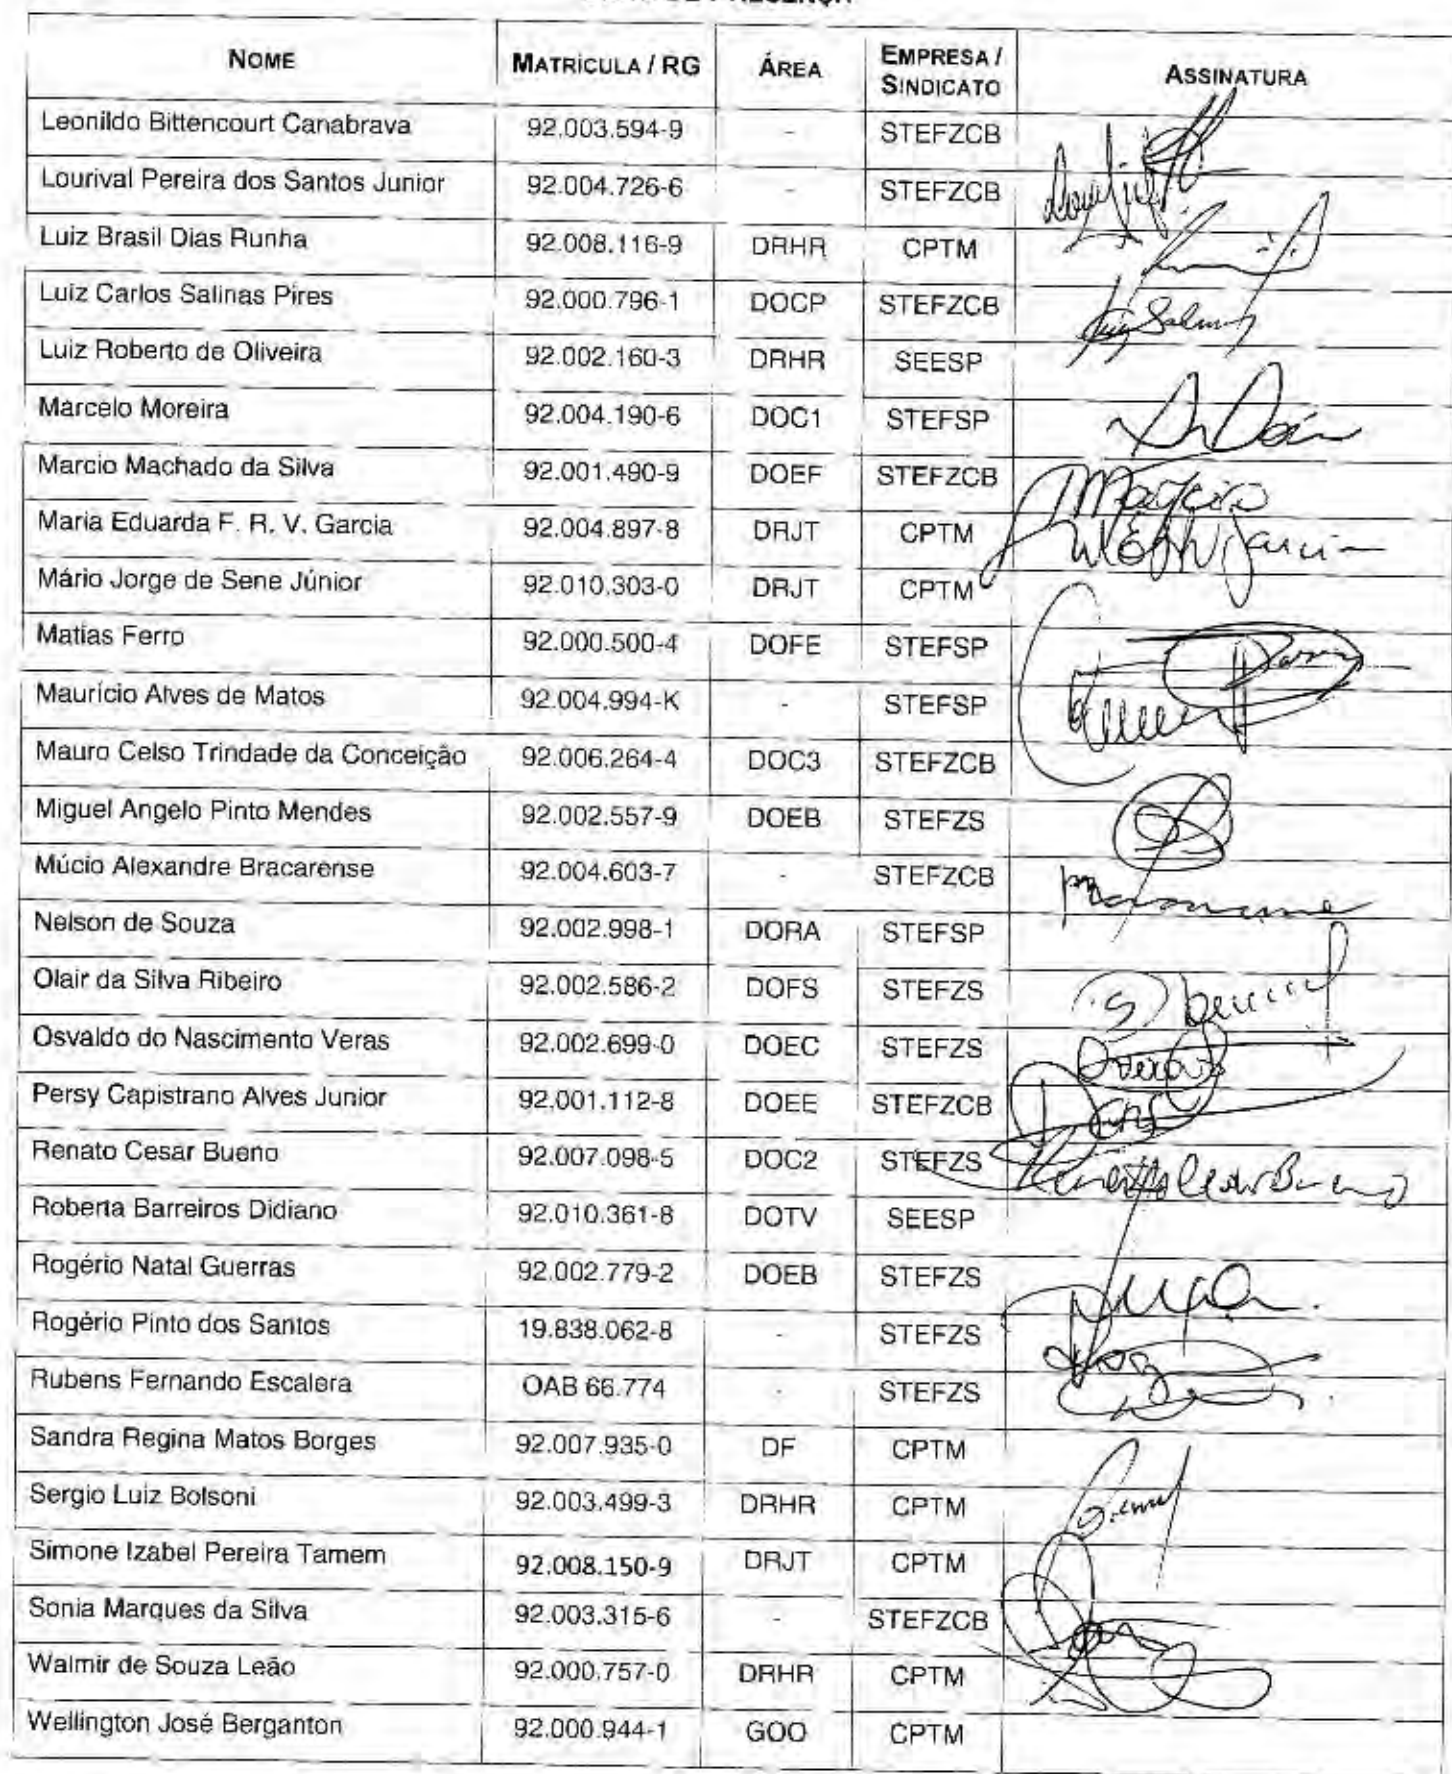 NOME MATRÍCULA / RG ÁREA EMPRESA / SINDICATO ASSINATURA
Leonildo Bittencourt Canabrava 92.003.594-9 - STEFZCB
Lourival Pereira dos Santos Junior 92.004.726-6 - STEFZCB
Luiz Brasil Dias Runha 92.008.116-9 DRHR CPTM
Luiz Carlos Salinas Pires 92.000.796-1 DOCP STEFZCB
Luiz Roberto de Oliveira 92.002.160-3 DRHR SEESP
Marcelo Moreira 92.004.190-6 DOC1 STEFSP
Marcio Machado da Silva 92.001.490-9 DOEF STEFZCB
Maria Eduarda F. R. V. Garcia 92.004.897-8 DRJT CPTM
Mário Jorge de Sene Júnior 92.010.303-0 DRJT CPTM
Matias Ferro 92.000.500-4 DOFE STEFSP
Maurício Alves de Matos 92.004.994-K - STEFSP
Mauro Celso Trindade da Conceição 92.006.264-4 DOC3 STEFZCB
Miguel Angelo Pinto Mendes 92.002.557-9 DOEB STEFZS
Múcio Alexandre Bracarense 92.004.603-7 - STEFZCB
Nelson de Souza 92.002.998-1 DORA STEFSP
Olair da Silva Ribeiro 92.002.586-2 DOFS STEFZS
Osvaldo do Nascimento Veras 92.002.699-0 DOEC STEFZS
Persy Capistrano Alves Junior 92.001.112-8 DOEE STEFZCB
Renato Cesar Bueno 92.007.098-5 DOC2 STEFZS Renato Cesar Bueno
Roberta Barreiros Didiano 92.010.361-8 DOTV SEESP
Rogério Natal Guerras 92.002.779-2 DOEB STEFZS
Rogério Pinto dos Santos 19.838.062-8 - STEFZS
Rubens Fernando Escalera OAB 66.774 - STEFZS
Sandra Regina Matos Borges 92.007.935-0 DF CPTM
Sergio Luiz Bolsoni 92.003.499-3 DRHR CPTM
Simone Izabel Pereira Tamem 92.008.150-9 DRJT CPTM
Sonia Marques da Silva 92.003.315-6 - STEFZCB
Walmir de Souza Leão 92.000.757-0 DRHR CPTM
Wellington José Berganton 92.000.944-1 GOO CPTM